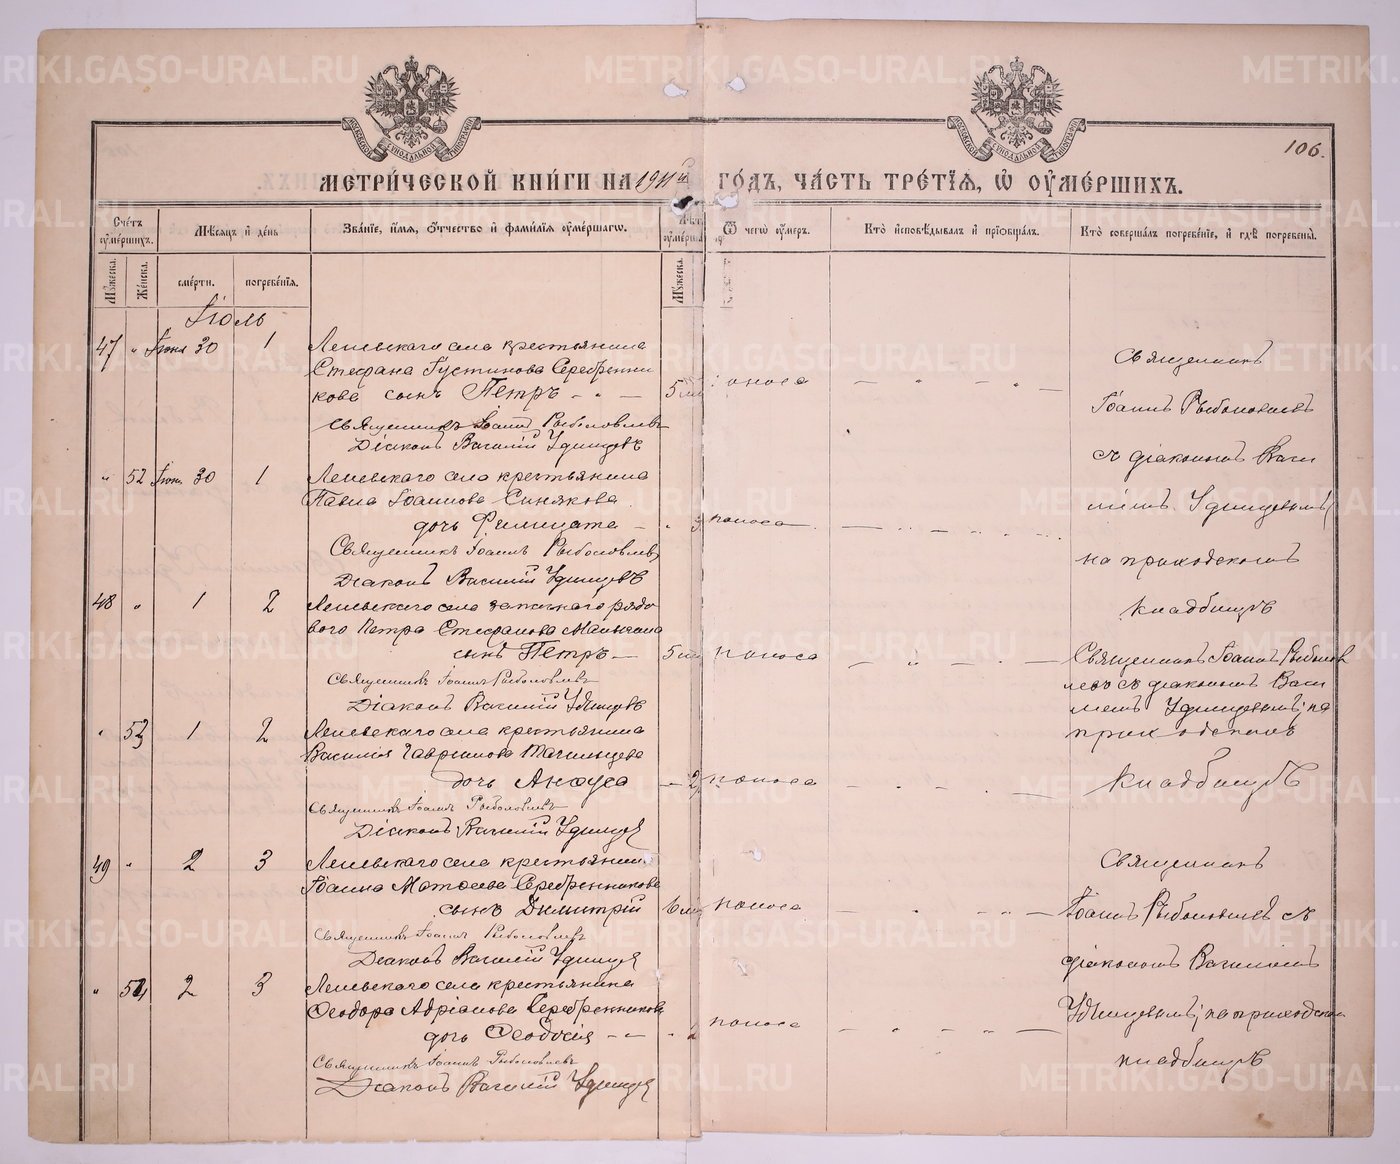 106.
МЕТРИЧЕСКОЙ КНИГИ НА 1911й ГОДЪ, ЧАСТЬ ТРЕТІЯ, Ѿ ОУМЕРШИХЪ.
Счетъ оумершихъ.
Мѣсяцъ и день
Званіе, имя, отчество и фамилія оумершагω.
Ѿ чегω оумеръ.
Кто исповѣдывалъ и пріобщалъ.
Кто совершалъ погребеніе, и гдѣ погребены.
Мужеска.
Женска.
смерти.
погребенія.
Мужеска.
Іюль
47 " Іюня 30 1
Леневскаго села крестьянина
Стефана Іустинова Серебренни
кова сынъ Петръ
5
поноса
Священникъ Іоаннъ Рыболовлевъ
Діаконъ Василій Удинцевъ
Священникъ
Іоаннъ Рыболовлевъ
съ діакономъ Васи
ліемъ Удинцевымъ
на приходскомъ
кладбищѣ
" 52 Іюня 30 1
Леневскаго села крестьянина
Павла Іоаннова Синякова
дочь Филицата
поноса
Священникъ Іоаннъ Рыболовлевъ
Діаконъ Василій Удинцевъ
48 " 1 2
Леневскаго села запаснаго рядо
вого Петра Стефанова
сынъ Петръ
5
поноса
Священникъ Іоаннъ Рыболовлевъ
Діаконъ Василій Удинцевъ
Священникъ Іоаннъ Рыболов
левъ съ діакономъ Васи
ліемъ Удинцевымъ, на
приходскомъ
кладбищѣ
" 53 1 2
Леневскаго села крестьянина
Василія Гавріилова
дочь Анфуса
2
поноса
Священникъ Іоаннъ Рыболовлевъ
Діаконъ Василій Удинцевъ
49 " 2 3
Леневскаго села крестьянина
Іоанна Матѳеева Серебренникова
сынъ Димитрій
6
поноса
Священникъ Іоаннъ Рыболовлевъ
Діаконъ Василій Удинцевъ
Священникъ
Іоаннъ Рыболовлевъ съ
діакономъ Василіемъ
Удинцевымъ, на приходском
кладбищѣ
" 54 2 3
Леневскаго села крестьянина
Ѳеодора Адріанова Серебренникова
дочь Ѳеодосія
поноса
Священникъ Іоаннъ Рыболовлевъ
Діаконъ Василій Удинцевъ
METRIKI.GASO-URAL.RU